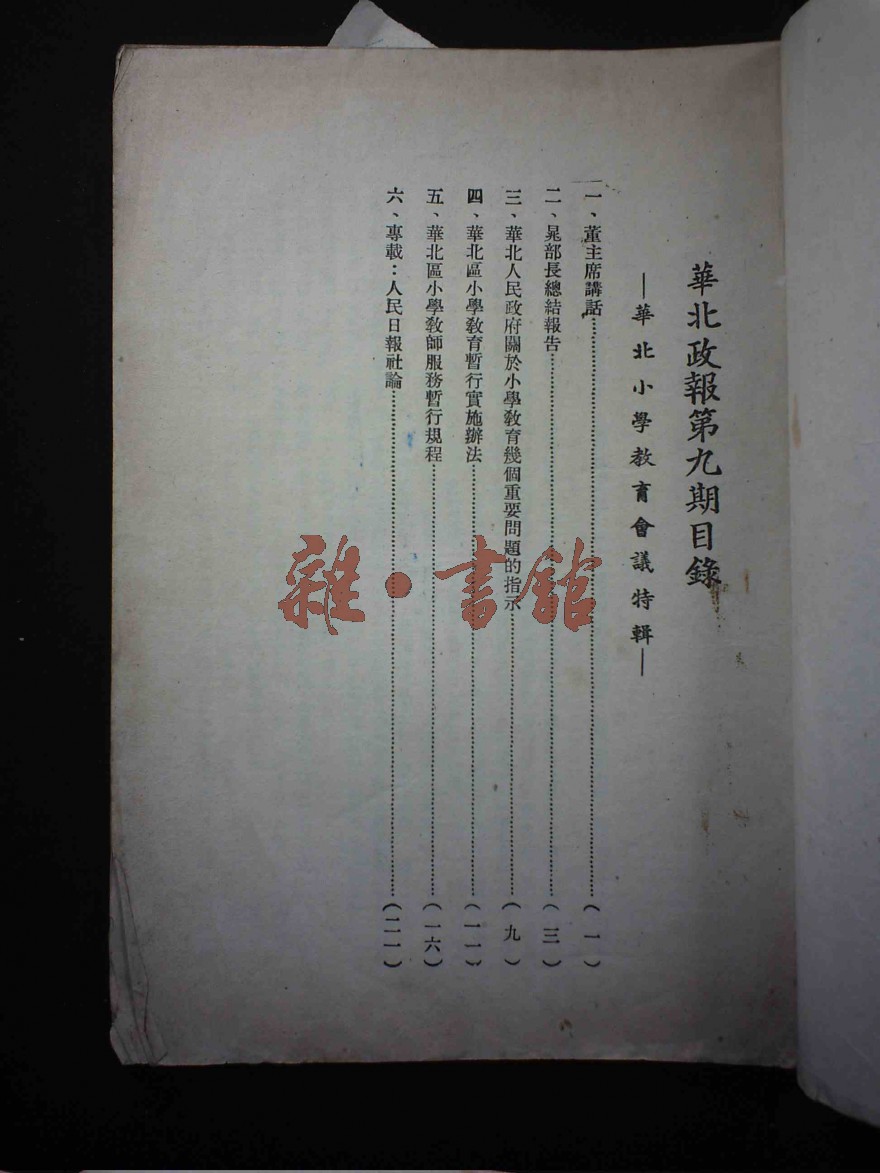 華北政報第九期目錄
—華北小學教育會議特輯—
一、董主席講話……(一)
二、晁部長總結報告……(三)
三、華北人民政府關於小學教育幾個重要問題的指示……(九)
四、華北區小學教育暫行實施辦法……(一一)
五、華北區小學教師服務暫行規程……(一六)
六、專載：人民日報社論……(二一)
雜·書館